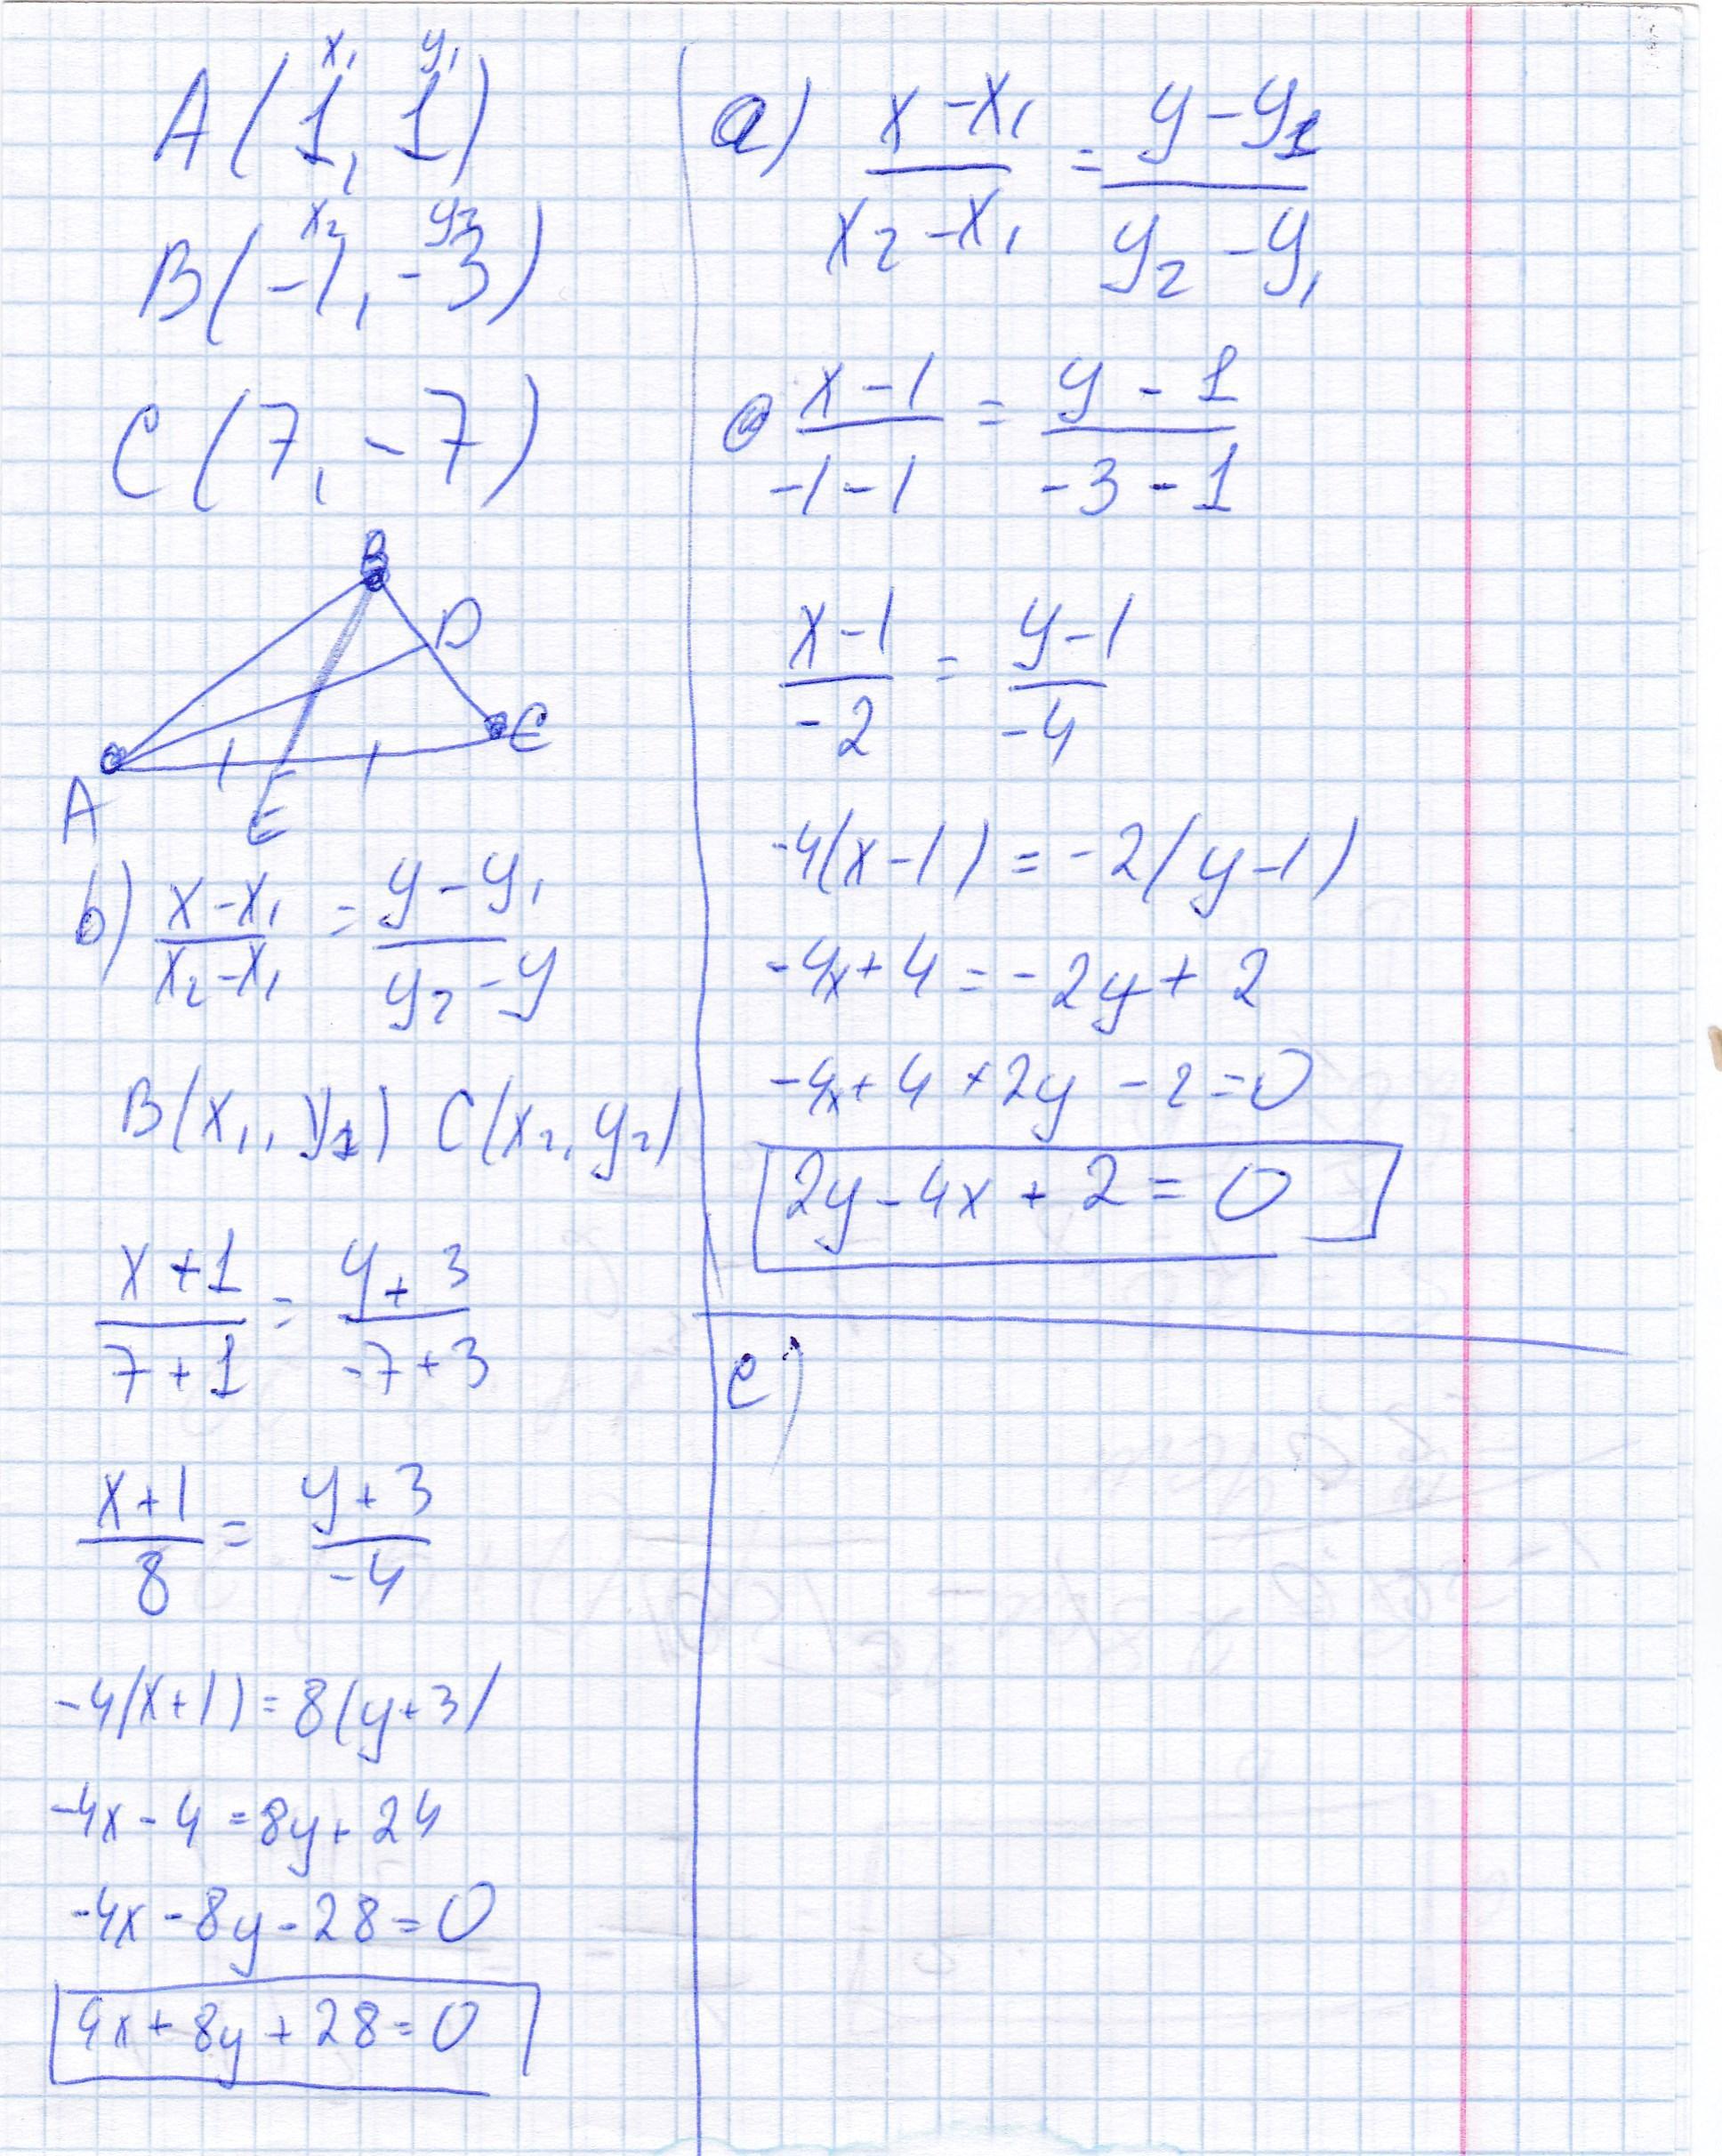 x₁ y₁
A(1, 1)
x₂ y₂
B(-1, -3)
C(7, -7)
B
D
C
A
E
b) (x-x₁)/(x₂-x₁) = (y-y₁)/(y₂-y)
B(x₁, y₁) C(x₂, y₂)
(x+1)/(7+1) = (y+3)/(-7+3)
(x+1)/8 = (y+3)/-4
-4(x+1) = 8(y+3)
-4x-4 = 8y+24
-4x-8y-28=0
4x+8y+28=0
a) (x-x₁)/(x₂-x₁) = (y-y₁)/(y₂-y₁)
(x-1)/(-1-1) = (y-1)/(-3-1)
(x-1)/-2 = (y-1)/-4
-4(x-1) = -2(y-1)
-4x+4 = -2y+2
-4x+4+2y-2=0
2y-4x+2=0
e)